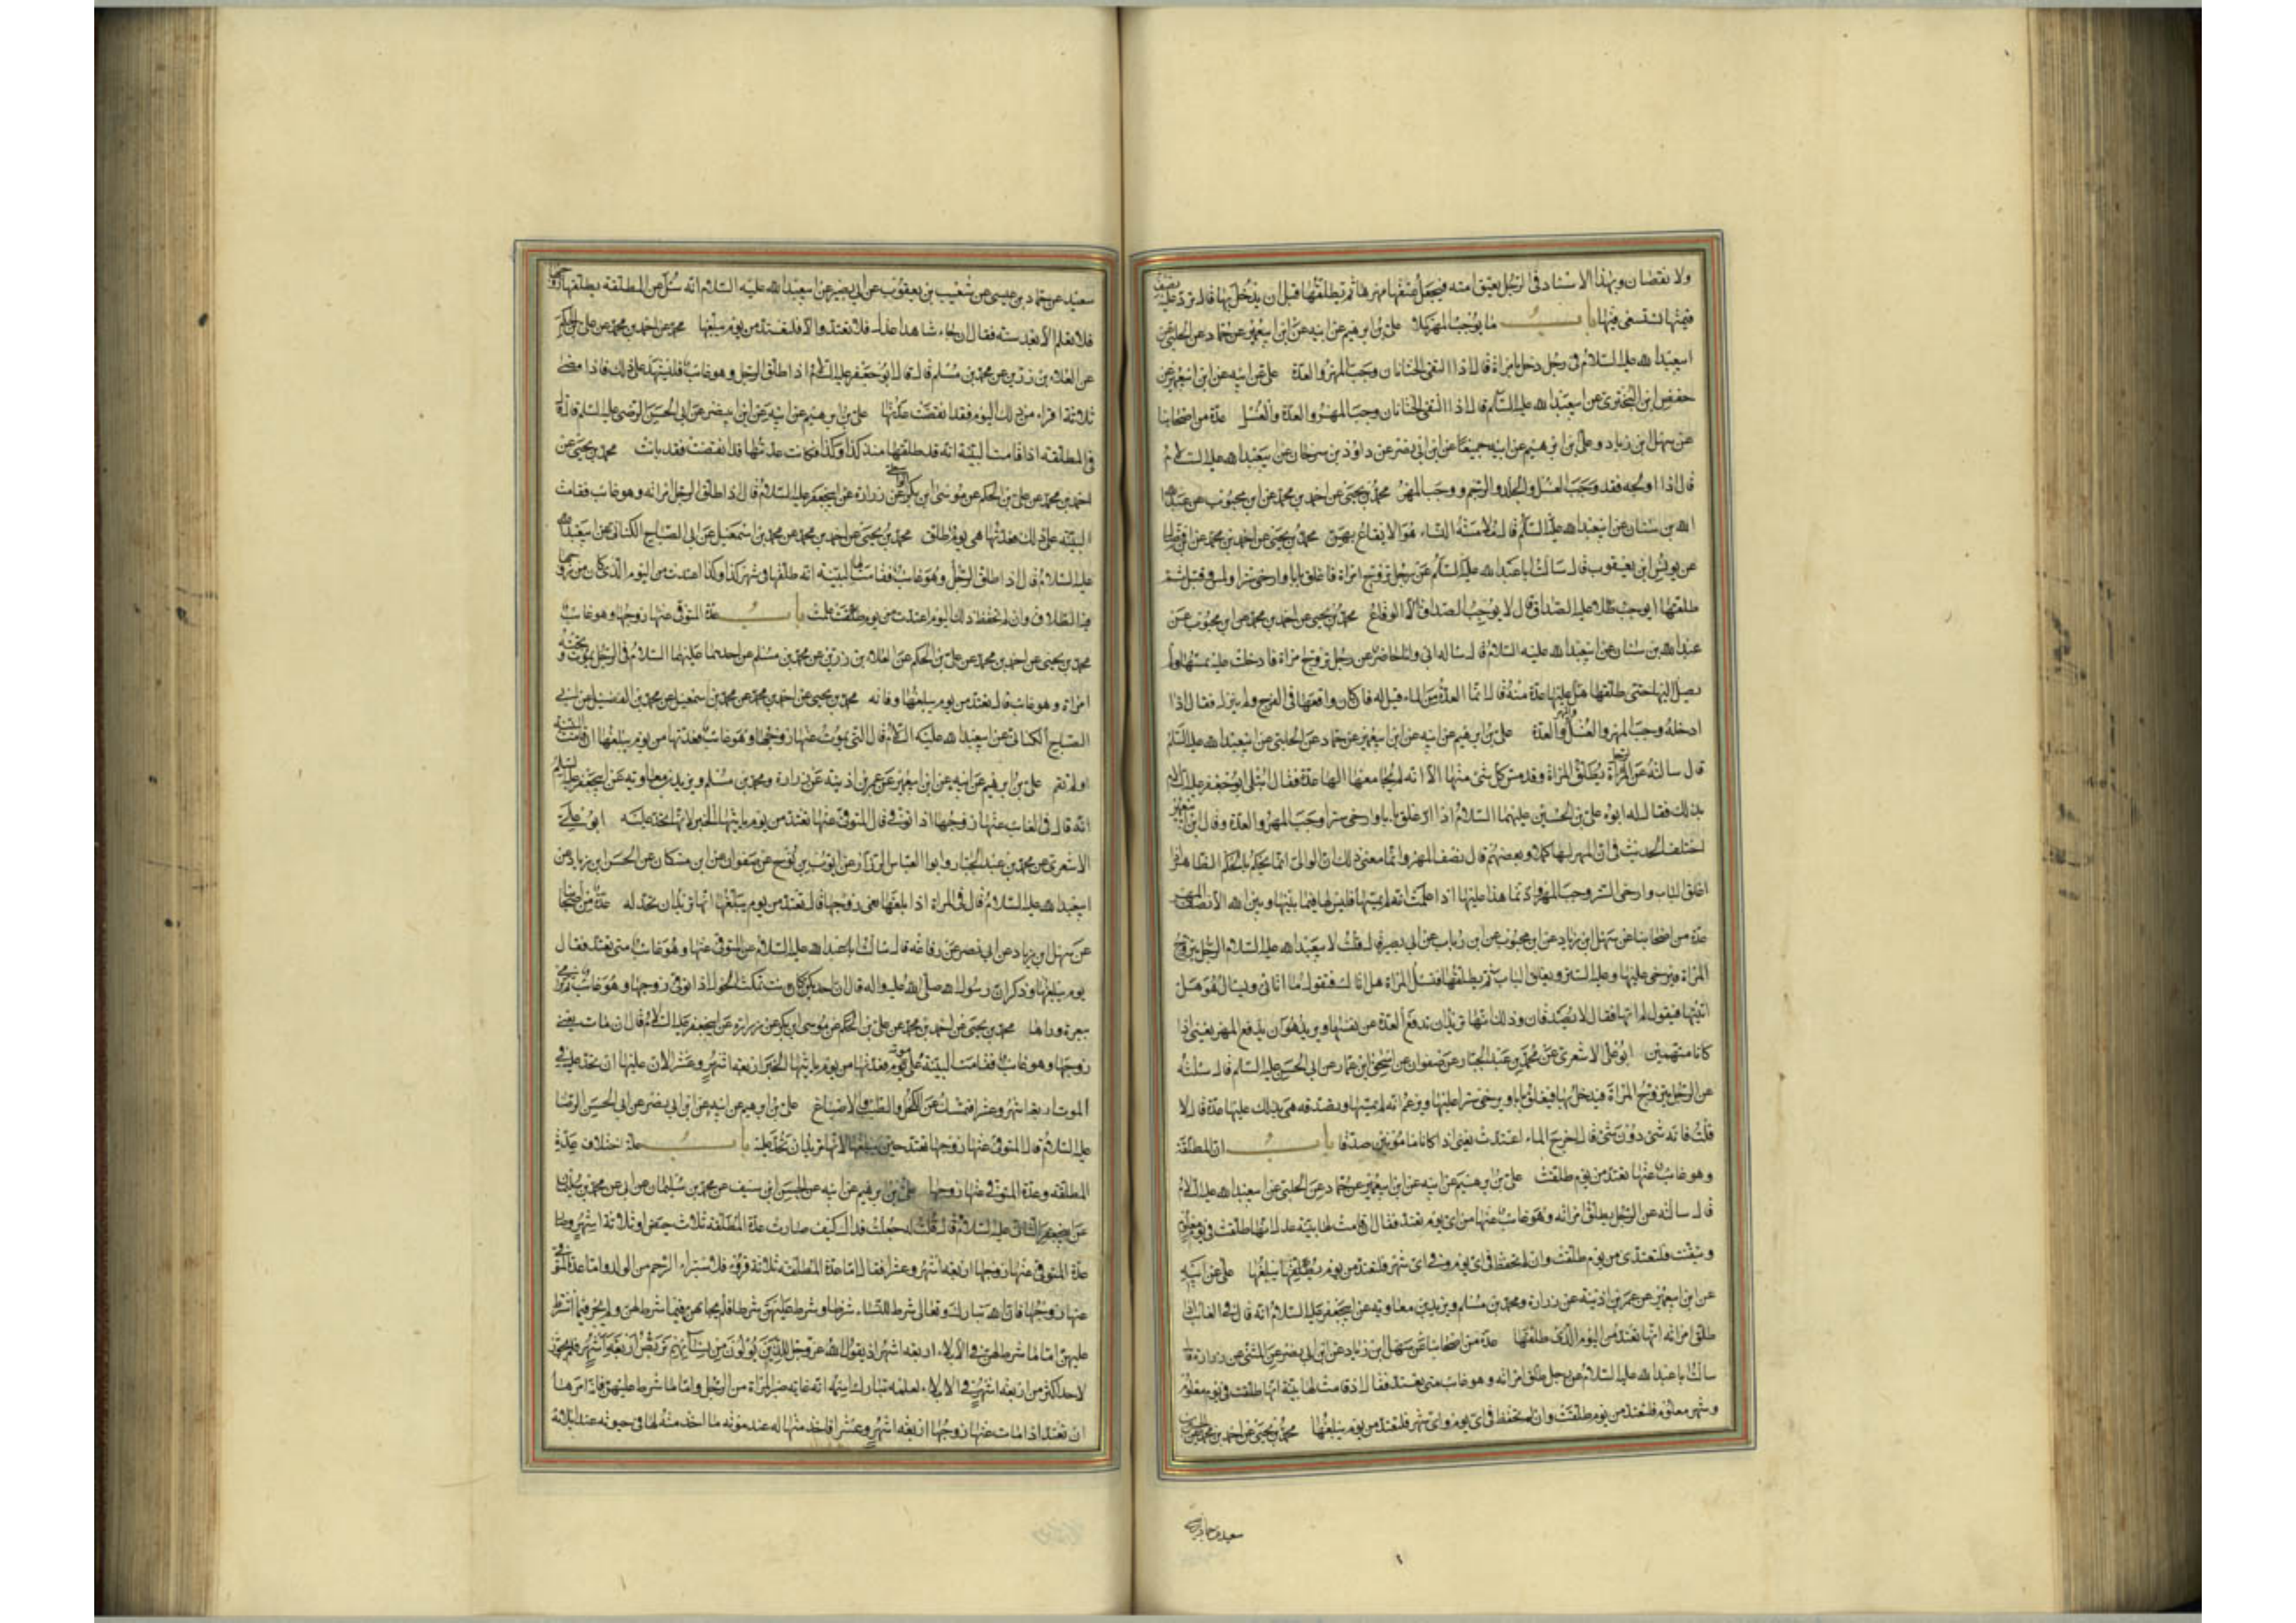 ولا نقصان وبهذا الاسناد فی الرجل یعتق امته فیجعل عتقها مهرها ثم یطلقها قبل ان یدخل بها قال یرد علیه نصف
قیمتها تستسعی فیها باب ما یوجب المهر کملا علی بن ابرهیم عن ابیه عن ابن ابیعمیر عن حماد عن الحلبی عن
ابیعبدالله علیه السلام فی رجل دخل بامراة قال اذا التقی الختانان وجب المهر والعدة علی عن ابیه عن ابن ابیعمیر عن
حفص ابن البختری عن ابیعبدالله علیه السلام قال اذا التقی الختانان وجب المهر والعدة والغسل عدة من اصحابنا
عن سهل ابن زیاد وعلی بن ابرهیم عن ابیه جمیعا عن ابن ابی نصر عن داود بن سرحان عن ابیعبدالله علیه السلام
قال اذا اولجه فقد وجب الغسل والجلد والرجم ووجب المهر محمد بن یحیی عن احمد بن محمد عن ابن محبوب عن عبد
الله بن سنان عن ابیعبدالله علیه السلام قال ملامسة النساء هو الایقاع بهن محمد بن یحیی عن احمد بن محمد عن ابن فضال
عن یونس ابن یعقوب قال سالت اباعبدالله علیه السلام عن رجل تزوج امراة فاغلق بابا وارخی سترا ولمس وقبل ثم
طلقها ایوجب علیه الصداق قال لا یوجب الصداق الا الوقاع محمد بن یحیی عن احمد بن محمد عن ابن محبوب عن
عبدالله بن سنان عن ابیعبدالله علیه السلام قال ساله ابی وانا حاضر عن رجل تزوج امراة فادخلت علیه فلم یمسها ولم
یصل الیها حتی طلقها هل علیها عدة منه قال انما العدة من الماء قیل له فان کان واقعها فی الفرج ولم ینزل فقال اذا
ادخله وجب المهر والغسل والعدة علی بن ابرهیم عن ابیه عن ابن ابیعمیر عن حماد عن الحلبی عن ابیعبدالله علیه السلام
قال سالته عن الرجل یطلق المراة وقد مس کل شیء منها الا انه لم یجامعها الها عدة فقال ابتلی ابوجعفر علیه السلام
بذلک فقال له ابوه علی بن الحسین علیهما السلام اذا اغلق بابا وارخی سترا وجب المهر والعدة وقال ابن ابیعمیر
اختلف الحدیث فی ان المهر لها کملا وبعضهم قال نصف المهر وانما معنی ذلک ان الوالی انما یحکم بالحکم الظاهر اذا
اغلق الباب وارخی الستر وجب المهر وانما هذا علیها اذا علمت انه لم یمسها فلیس لها فیما بینها وبین الله الا نصف المهر
عدة من اصحابنا عن سهل ابن زیاد عن ابن محبوب عن ابن رئاب عن ابی بصیر قال قلت لابیعبدالله علیه السلام الرجل یتزوج
المراة فیرخی علیها وعلیه الستر ویغلق الباب ثم یطلقها فتسئل المراة هل اتاک فتقول ما اتانی ویسال هو هل
اتیتها فیقول لم اتها فقال لا یصدقان وذلک انها ترید ان تدفع العدة عن نفسها ویرید هو ان یدفع المهر یعنی اذا
کانا متهمین ابو علی الاشعری عن محمد بن عبد الجبار عن صفوان عن اسحق ابن عمار عن ابی الحسن علیه السلام قال سئلته
عن الرجل یتزوج المراة فیدخل بها فیغلق بابا ویرخی سترا علیها ویزعم انه لم یمسها وتصدقه هی بذلک علیها عدة قال لا
قلت فانه شیء دون شیء قال ان اخرج الماء اعتدت یعنی اذا کانا مامونین صدقا باب ان المطلقة
وهو غائب عنها تعتد من یوم طلقت علی بن ابرهیم عن ابیه عن ابن ابیعمیر عن حماد عن الحلبی عن ابیعبدالله علیه السلام
قال سالته عن الرجل یطلق امراته وهو غائب عنها من ای یوم تعتد فقال ان قامت لها بینة عدل انها طلقت فی یوم معلوم
وتیقنت فلتعتدی من یوم طلقت وان لم تحفظ فی ای یوم وفی ای شهر فلتعتد من یوم یبلغها علی عن ابیه
عن ابن ابیعمیر عن عمر بن اذینه عن زرارة ومحمد بن مسلم وبرید بن معاویه عن ابیجعفر علیه السلام انه قال فی الغائب اذا
طلق امراته انها تعتد من الیوم الذی طلقها عدة من اصحابنا عن سهل ابن زیاد عن ابن ابی نصر عن المثنی عن زرارة قال
سالت اباعبدالله علیه السلام عن رجل طلق امراته وهو غائب متی تعتد فقال اذ قامت لها بینة انها طلقت فی یوم معلوم
وشهر معلوم فلتعتد من یوم طلقت وان لم تحفظ فی ای یوم وای شهر فلتعتد من یوم یبلغها محمد بن یحیی عن احمد بن محمد عن الحسین بن
سعید عن حماد بن عیسی
سعید عن حماد بن عیسی عن شعیب بن یعقوب عن ابی بصیر عن ابیعبدالله علیه السلام انه سئل عن المطلقة یطلقها زوجها
فلا تعلم الا بعد سنه فقال ان جاء شاهدا عدل فلا تعتد والا فلتعتد من یوم یبلغها محمد عن احمد بن محمد عن علی بن الحکم
عن العلاء بن رزین عن محمد بن مسلم قال قال ابوجعفر علیه السلام اذا طلق الرجل وهو غائب فلیشهد علی ذلک فاذا مضی
ثلاثة اقراء من ذلک الیوم فقد انقضت عدتها علی بن ابرهیم عن ابیه عن ابن ابی نصر عن ابی الحسن الرضی علیه السلام قال
فی المطلقه اذا قامت البینة انه قد طلقها منذ کذا وکذا فکانت عدتها قد انقضت فقد بانت محمد بن یحیی عن
احمد بن محمد عن علی بن الحکم عن موسی ابن بکر عن زرارة عن ابیجعفر علیه السلام قال اذا طلق الرجل امراته وهو غائب فقامت
البینه علی ذلک فعدتها هی یوم طلق محمد بن یحیی عن احمد بن محمد عن محمد بن اسمعیل عن ابی الصباح الکنانی عن ابیعبدالله
علیه السلام قال اذا طلق الرجل وهو غائب فقامت لها البینه انه طلقها فی شهر کذا وکذا اعتدت من الیوم الذی کان من زوجها
فیه الطلاق وان لم تحفظ ذلک الیوم اعتدت من یوم علمت باب عدة المتوفی عنها زوجها وهو غائب
محمد بن یحیی عن احمد بن محمد عن علی بن الحکم عن العلاء بن رزین عن محمد بن مسلم عن احدهما علیهما السلام فی الرجل یموت وتحته
امراة وهو غائب قال تعتد من یوم یبلغها وفاته محمد بن یحیی عن احمد بن محمد عن محمد بن اسمعیل عن محمد بن الفضیل عن ابی
الصباح الکنانی عن ابیعبدالله علیه السلام قال التی یموت عنها زوجها وهو غائب فعدتها من یوم یبلغها ان قامت البینة
اولم تقم علی بن ابرهیم عن ابیه عن ابن ابیعمیر عن عمر بن اذینه عن زرارة ومحمد بن مسلم وبرید بن معاویه عن ابیجعفر علیه السلام
انه قال فی الغائب عنها زوجها اذا توفی قال المتوفی عنها تعتد من یوم یاتیها الخبر لانها تحد علیه ابو علی
الاشعری عن محمد بن عبد الجبار وابوا العباس الرزاز عن ایوب بن نوح عن صفوان عن ابن مسکان عن الحسن ابن زیاد عن
ابیعبدالله علیه السلام قال فی المراة اذا بلغها نعی زوجها قال تعتد من یوم یبلغها انها ترید ان تحد له عدة من اصحابنا
عن سهل ابن زیاد عن ابی نصر عن رفاعه قال سالت اباعبدالله علیه السلام عن المتوفی عنها وهو غائب متی تعتد فقال
یوم یبلغها وذکر ان رسول الله صلی الله علیه واله قال ان احدیکن کانت تمکث الحول اذا توفی زوجها وهو غائب ثم ترمی
ببعرة وراها محمد بن یحیی عن احمد بن محمد عن علی بن الحکم عن موسی ابن بکر عن زرارة عن ابیجعفر علیه السلام قال ان مات یعنی
زوجها وهو غائب فقامت البینة علی موته فعدتها من یوم یاتیها الخبر اربعه اشهر وعشرا لان علیها ان تحد علیه فی
الموت اربعه اشهر وعشرا فتمسک عن الکحل والطیب والاصباغ علی بن ابرهیم عن ابیه عن ابن ابی نصر عن ابی الحسن الرضا
علیه السلام قال المتوفی عنها زوجها تعتد حین یبلغها لانها ترید ان تحد علیه باب علة اختلاف عدة
المطلقه وعدة المتوفی عنها زوجها علی بن ابرهیم عن ابیه عن الحسین ابن سیف عن محمد بن سلیمان
عن ابیجعفر الثانی علیه السلام قال قلت له جعلت فداک کیف صارت عدة المطلقه ثلاث حیض او ثلاثة اشهر وصارت
عدة المتوفی عنها زوجها اربعه اشهر وعشرا فقال اما عدة المطلقه ثلاثة قروء فلاستبراء الرحم من الولد واما عدة المتوفی
عنها زوجها فان الله تبارک وتعالی شرط للنساء شرطا وشرط علیهن شرطا فلم یجابهن فیما شرط لهن ولم یجر فیما اشترط
علیهن اما ما شرط لهن فی الایلاء اربعه اشهر اذ یقول الله عز وجل للذین یولون من نسائهم تربص اربعة اشهر فلم یجوز
لاحد اکثر من اربعه اشهر فی الایلاء لعلمه تبارک اسمه انه غایه صبر المراة من الرجل واما ما شرط علیهن فانه امرها
ان تعتد اذا مات عنها زوجها اربعه اشهر وعشرا فاخذ منها له عند موته ما اخذ منه لها فی حیوته عند ایلائه